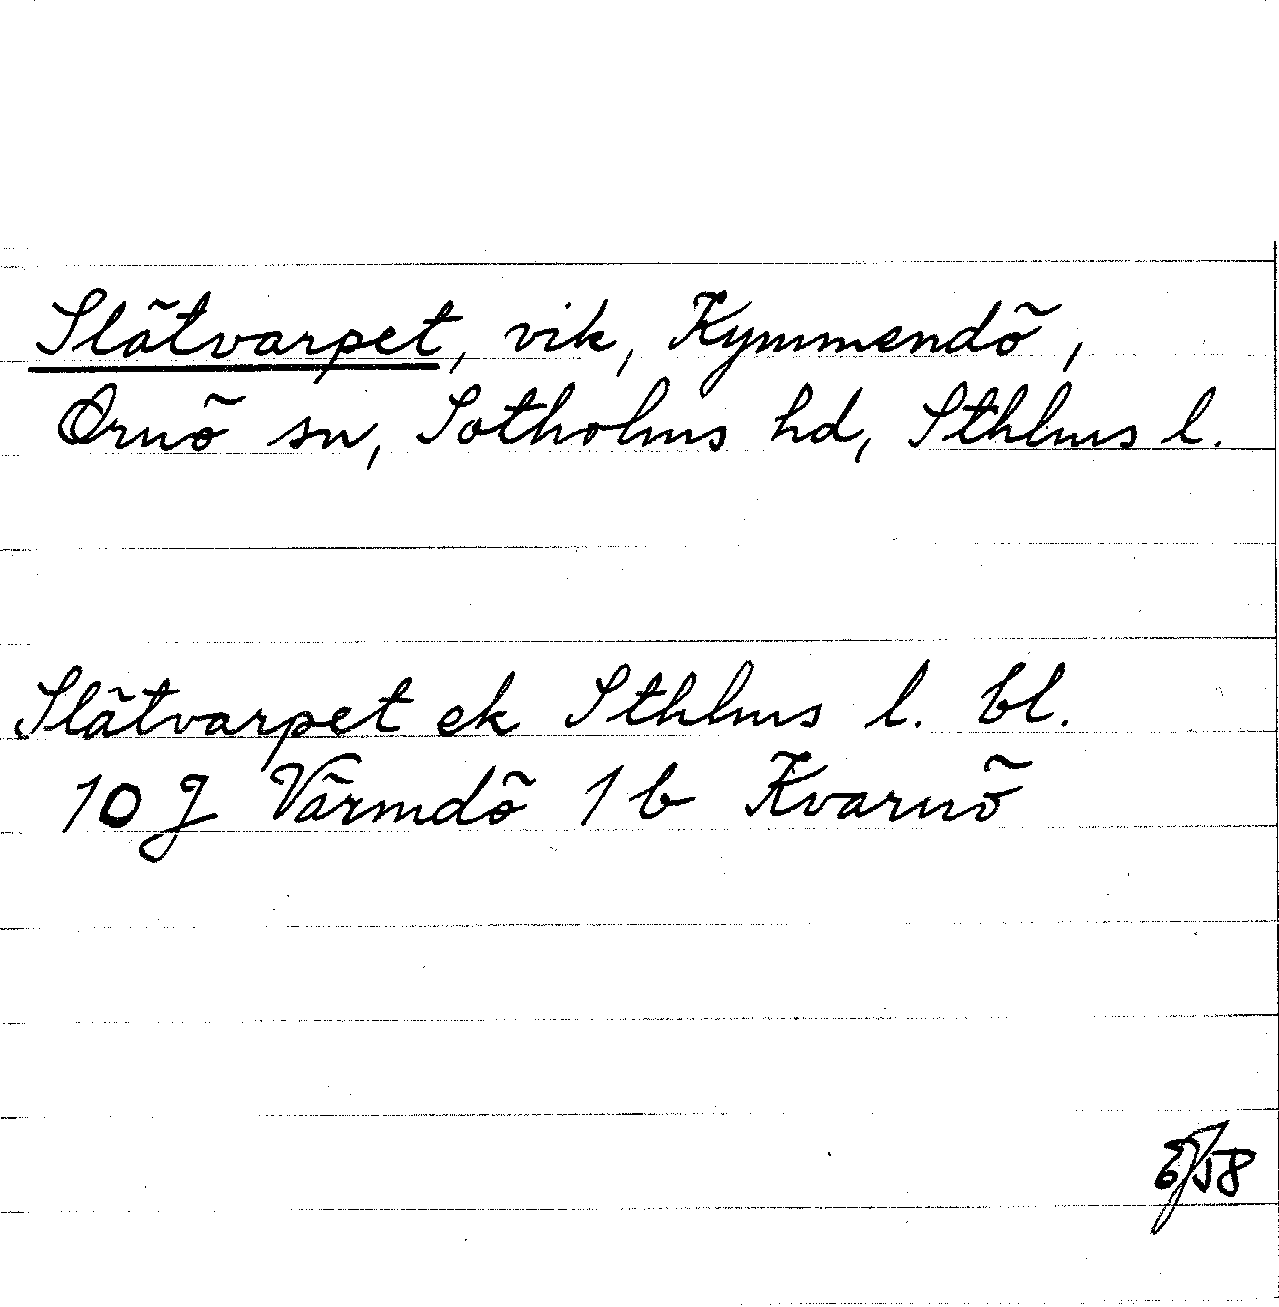 Slätvarpet, vik, Kymmendö,
Ornö sn, Sotholms hd, Sthlms l.
Slätvarpet ek Sthlms l. bl.
10 J Värmdö 1 b Kvarnö